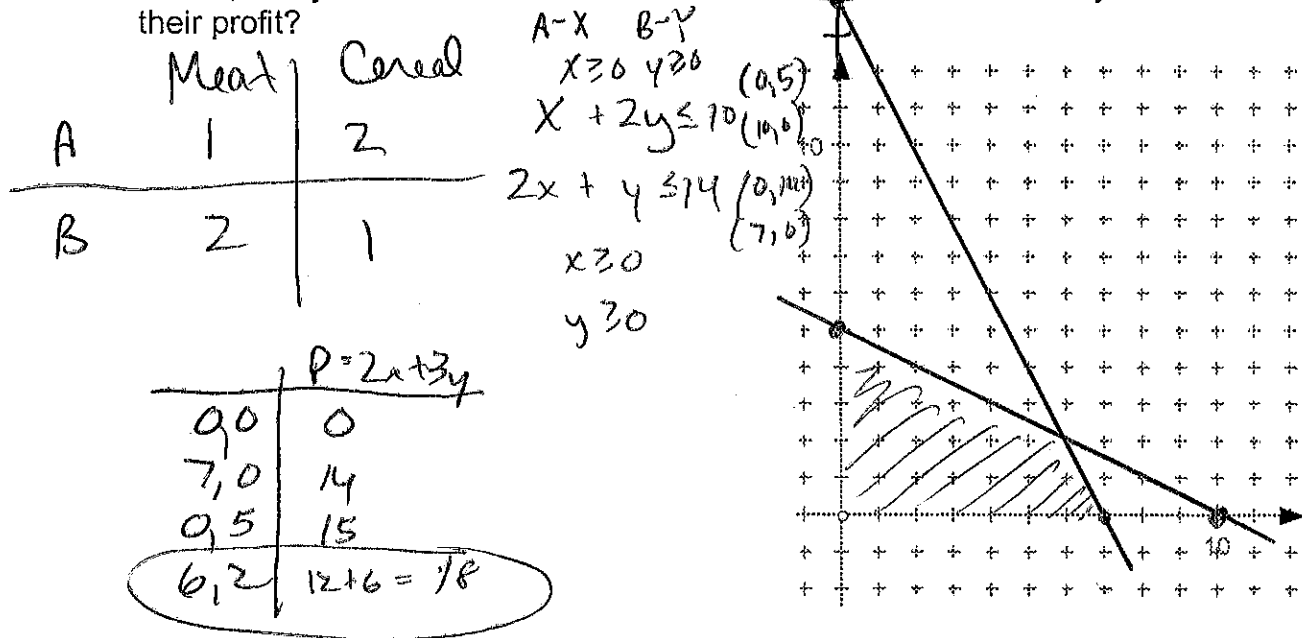 their profit?
Meat Cereal
A 1 2
B 2 1
A-X B-Y
x≥0 y≥0
x + 2y ≤ 10 (0,5) (10,0)
2x + y ≤ 14 (0,14) (7,0)
x≥0
y≥0
P=2x+3y
0,0 0
7,0 14
0,5 15
6,2 12+6=18
10
10